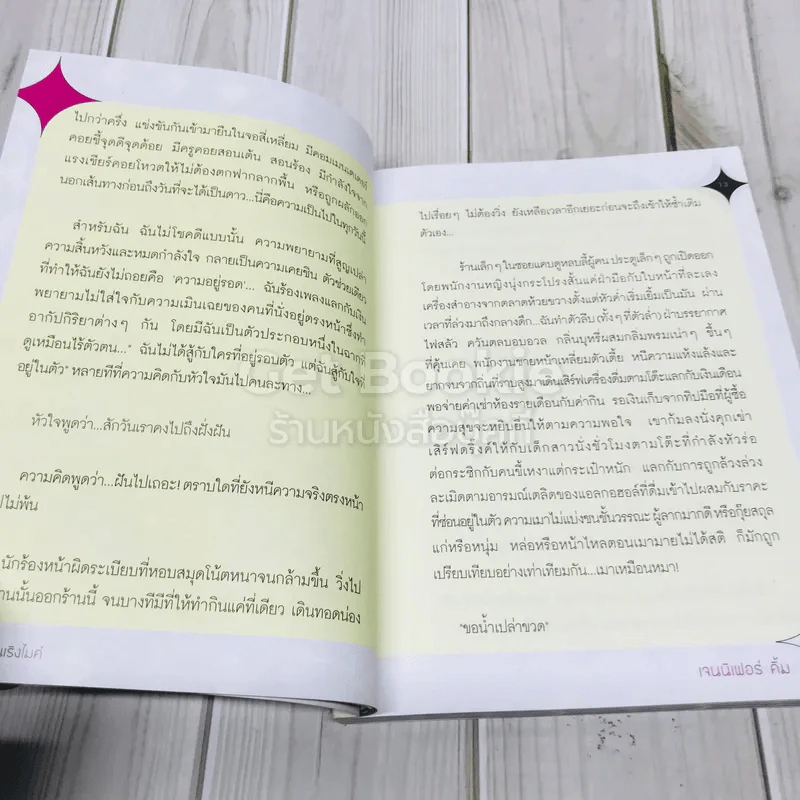 ไปกว่าครึ่ง แข่งขันกันเข้ามายืนในจอสี่เหลี่ยม มีคอมเมนเตเตอร์
คอยชี้จุดดีจุดด้อย มีครูคอยสอนเต้น สอนร้อง มีกำลังใจจาก
แรงเชียร์คอยโหวตให้ไม่ต้องตกฟากลากพื้น หรือถูกผลักออก
นอกเส้นทางก่อนถึงวันที่จะได้เป็นดาว...นี่คือความเป็นไปในทุกวันนี้
สำหรับฉัน ฉันไม่โชคดีแบบนั้น ความพยายามที่สูญเปล่า
ความสิ้นหวังและหมดกำลังใจ กลายเป็นความเคยชิน ตัวช่วยเดียว
ที่ทำให้ฉันยังไม่ถอยคือ 'ความอยู่รอด'... ฉันร้องเพลงแลกกับเงิน
พยายามไม่ใส่ใจกับความเมินเฉยของคนที่นั่งอยู่ตรงหน้าซึ่งทำ
อากัปกิริยาต่างๆ กัน โดยมีฉันเป็นตัวประกอบหนึ่งในฉากที่
ดูเหมือนไร้ตัวตน..." ฉันไม่ได้สู้กับใครที่อยู่รอบตัว แต่ฉันสู้กับใจที่
อยู่ในตัว" หลายทีที่ความคิดกับหัวใจมันไปคนละทาง...
หัวใจพูดว่า...สักวันเราคงไปถึงฝั่งฝัน
ความคิดพูดว่า...ฝันไปเถอะ! ตราบใดที่ยังหนีความจริงตรงหน้า
ปไม่พ้น
นักร้องหน้าผิดระเบียบที่หอบสมุดโน้ตหนาจนกล้ามขึ้น วิ่งไป
านนั้นออกร้านนี้ จนบางทีมีที่ให้ทำกินแค่ที่เดียว เดินทอดน่อง
แร็งไมค์
13
ไปเรื่อยๆ ไม่ต้องวิ่ง ยังเหลือเวลาอีกเยอะก่อนจะถึงเช้าให้ซ้ำเติม
ตัวเอง...
ร้านเล็กๆ ในซอยแคบดูหลบลี้ผู้คน ประตูเล็กๆ ถูกเปิดออก
โดยพนักงานหญิงนุ่งกระโปรงสั้นแค่ฝ่ามือกับใบหน้าที่ละเลง
เครื่องสำอางจากตลาดห้วยขวางตั้งแต่หัวค่ำเริ่มเยิ้มเป็นมัน ผ่าน
เวลาที่ล่วงมาถึงกลางดึก...ฉันทำตัวลีบ (ทั้งๆ ที่ตัวล่ำ) ฝ่าบรรยากาศ
ไฟสลัว ควันตลบอบอวล กลิ่นบุหรี่ผสมกลิ่มพรมเน่าๆ ชื้นๆ
ที่คุ้นเคย พนักงานชายหน้าเหลี่ยมตัวเตี้ย หนีความแห้งแล้งและ
ยากจนจากถิ่นที่ราบสูงมาเดินเสิร์ฟเครื่องดื่มตามโต๊ะแลกกับเงินเดือน
พอจ่ายค่าเช่าห้องรายเดือนกับค่ากิน รอเงินเก็บจากทิปมือที่ผู้ซื้อ
ความสุขจะหยิบยื่นให้ตามความพอใจ เขาก้มลงนั่งคุกเข่า
เสิร์ฟดริ๊งค์ให้กับเด็กสาวนั่งชั่วโมงตามโต๊ะที่กำลังหัวร่อ
ต่อกระซิกกับคนขี้เหงาแต่กระเป๋าหนัก แลกกับการถูกล้วงล่วง
ละเมิดตามอารมณ์เตลิดของแอลกอฮอล์ที่ดื่มเข้าไปผสมกับราคะ
ที่ซ่อนอยู่ในตัว ความเมาไม่แบ่งชนชั้นวรรณะ ผู้ลากมากดี หรือกุ๊ยสถุล
แก่หรือหนุ่ม หล่อหรือหน้าไหลตอนเมามายไม่ได้สติ ก็มักถูก
เปรียบเทียบอย่างเท่าเทียมกัน...เมาเหมือนหมา!
"ขอน้ำเปล่าขวด"
เจนนิเฟอร์ คิ้ม
Get Bookie